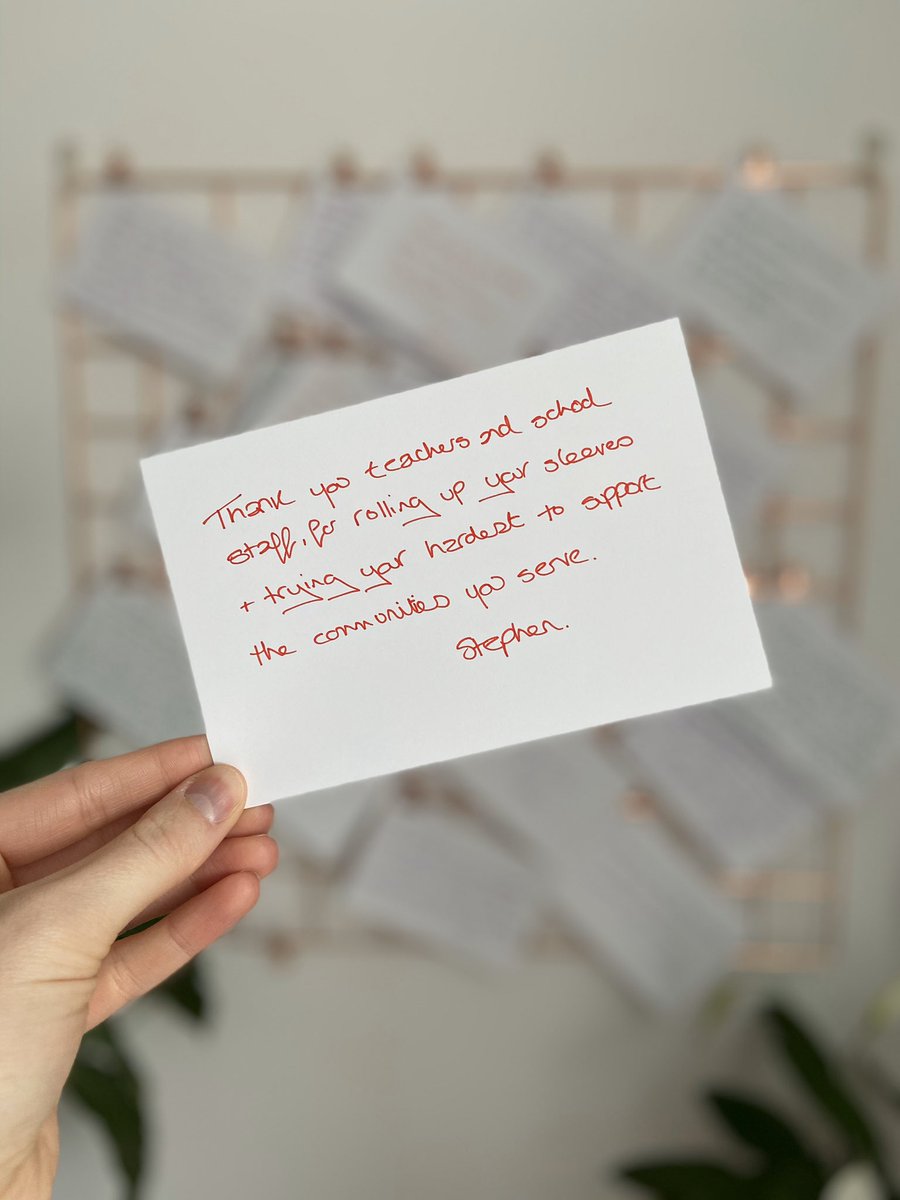 Thank you teachers and school
staff, for rolling up your sleeves
+ trying your hardest to support
the communities you serve.
Stephen.